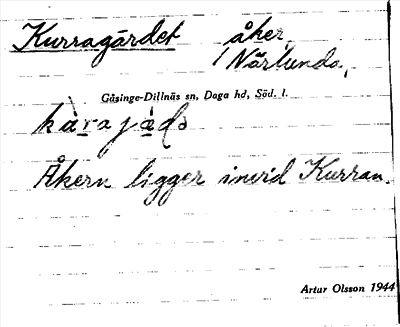 Kurragärdet åker,
Närlunda,
Gåsinge-Dillnäs sn, Daga hd, Söd. l.
Åkern ligger invid Kurran.
Artur Olsson 1944